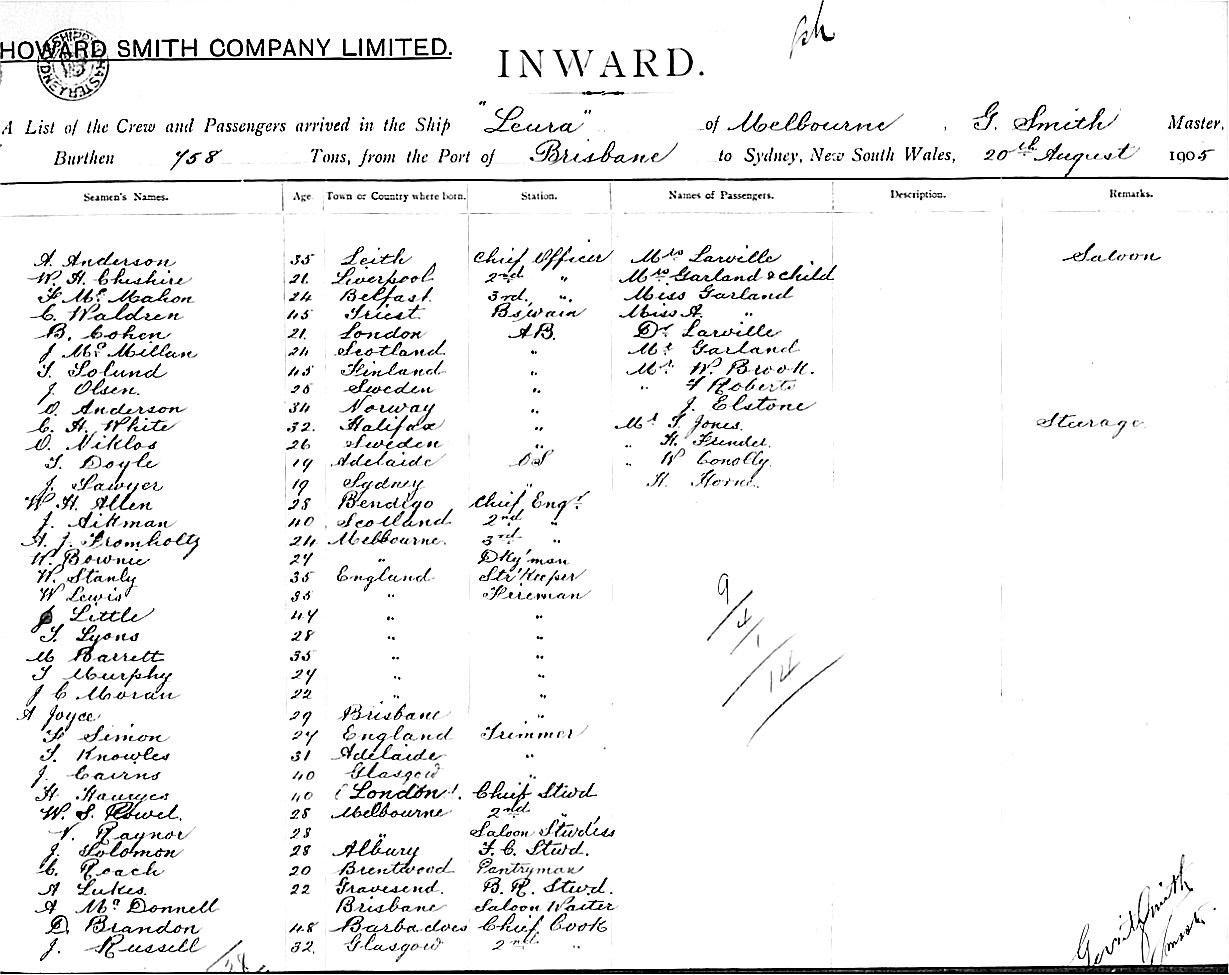 HOWARD SMITH COMPANY LIMITED.
INWARD.
A List of the Crew and Passengers arrived in the Ship "Leura" of Melbourne, G. Smith Master,
Burthen 758 Tons, from the Port of Brisbane to Sydney, New South Wales, 20th August 1905
Seamen's Names. Age. Town or Country where born. Station. Names of Passengers. Description. Remarks.
A. Anderson 35 Leith Chief Officer Mrs Larville Saloon
W. H. Cheshire 21 Liverpool 2nd " Mrs Garland & child
F Mc Mahon 24 Belfast 3rd " Miss Garland
C. Waldren 45 Triest Bswain Miss A. "
B. Cohen 21 London AB. Dr Larville
J. McMillan 24 Scotland " Mr Garland
T. Solund 45 Finland " Mr W. Brook.
J. Olsen. 25 Sweden " " F Roberts
O. Anderson 34 Norway " J. Elstone
C. H. White 32. Halifax " Mr T. Jones. Steerage
O. Niklos 26 Sweden " " H.
T. Doyle 19 Adelaide OS " W Conolly.
J. Sawyer 19 Sydney " H. Horne.
W. H. Allen 28 Bendigo Chief Engr.
J. Aikman 40 Scotland 2nd "
A. J. Fromholtz 24 Melbourne. 3rd "
W. Bownie 27 " Dky'man
W. Stanly 35 England Str'Keeper
W Lewis 35 " Fireman
Little 47 " "
T. Lyons 28 " "
M Barrett 35 " "
T Murphy 27 " "
J C Moran 22 " "
A Joyce 29 Brisbane "
F Simon 27 England Trimmer
T. Knowles 31 Adelaide "
J. Cairns 40 Glasgow "
H. 40 (London). Chief Stwd
W. S. Rowel. 28 Melbourne 2nd "
V. Raynor 28 " Saloon Stwd'ess
J. Solomon 28 Albury F. C. Stwd.
C. Roach 20 Brentwood Pantryman
A Lukes. 22 Gravesend. B. R. Stwd.
A McDonnell Brisbane Saloon Waiter
D. Brandon 48 Barbadoes Chief Cook
J. Russell 32. Glasgow 2nd "
9
4
1
14
Smith